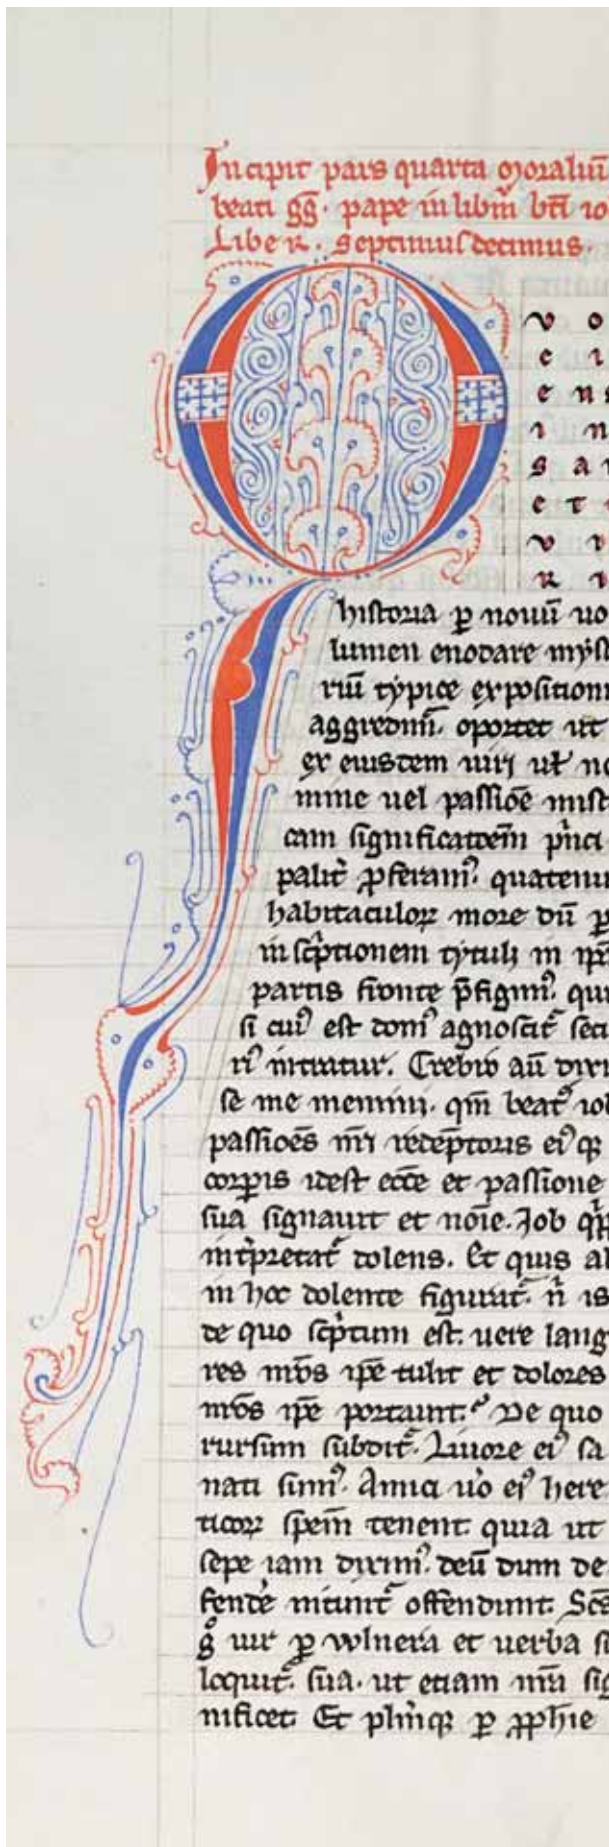 Incipit pars quarta moraliū
beati gg̅. pape in libr̅m bt̅i io
Liber. septimus decimus.
Q
v o
e i
e n s
i n
s a
e t
v i
r i
historia p̲ nouū uo
lumen enodare myst
riū typice expositioni
aggredim᷑. oportet ut
ex eiusdem uiri ut̅ no
mine uel passiōe misti
cam significatōem pͥnci
palit᷑ ꝓferamꝰ quatenu
habitaculoꝝ more dū p̲
inscͥptionem tytuli in ip̅i
partis fronte p̅figimꝰ. qui
si cuiꝰ est domꝰ agnoscat᷑ secu
riꝰ intratur. Crebro aū dixi
se me memini. qm̅ beatꝰ iob
passiōes nr̅i redēptoris eiꝰqꝫ
corpͥis idest ecc̅e et passione
sua signauit et noīe. Job qͥp̲
int̅pretat᷑ dolens. Et quis al
in hoc dolente figurat᷑. n̅ is
de quo scͥptum est. uere lang
res nr̅os ip̅e tulit et dolores
nr̅os ip̅e portauit. De quo
rursum subdit᷑. Liuore eiꝰ sa
nati sumꝰ. Amici u̅o eiꝰ here
ticoꝝ speīm tenent. quia ut
sepe iam diximꝰ. deū dum de
fende᷑ nitunt᷑ offendunt. Sc̅s
gͦ uir p̲ vulnera et uerba si
loquit᷑. sua. ut etiam nr̅a sig
nificet. Et pler̅iqꝫ p̲ ꝓph̅ie